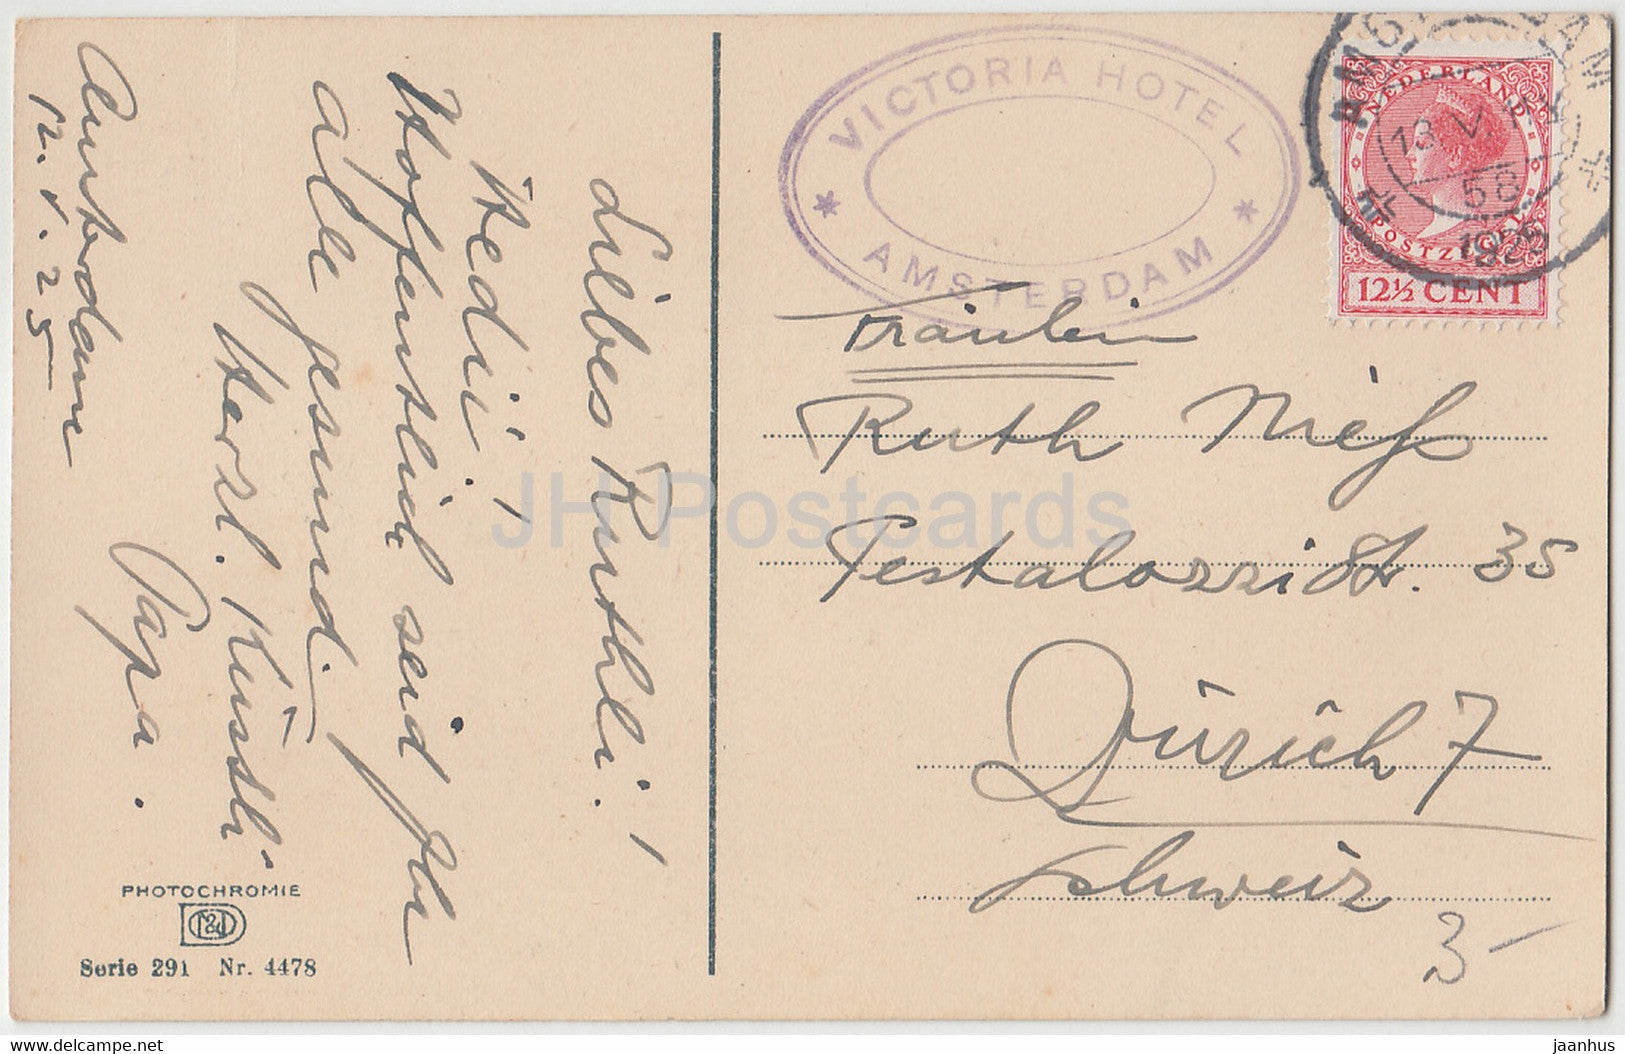 Amsterdam
12. V. 25
Liebes Ruthli!
Hedi!
Hoffentlich seid Ihr
alle gesund.
Herzl. Küssli
Papa.
PHOTOCHROMIE
Serie 291 Nr. 4478
VICTORIA HOTEL
AMSTERDAM
NEDERLAND
POSTZEGEL
12½ CENT
AMSTERDAM
13 V.
58
1925
Fräulein
Ruth Nieß
Pestalozzistr. 35
Zürich 7
Schweiz
3-
JH Postcards
www.delcampe.net
jaanhus